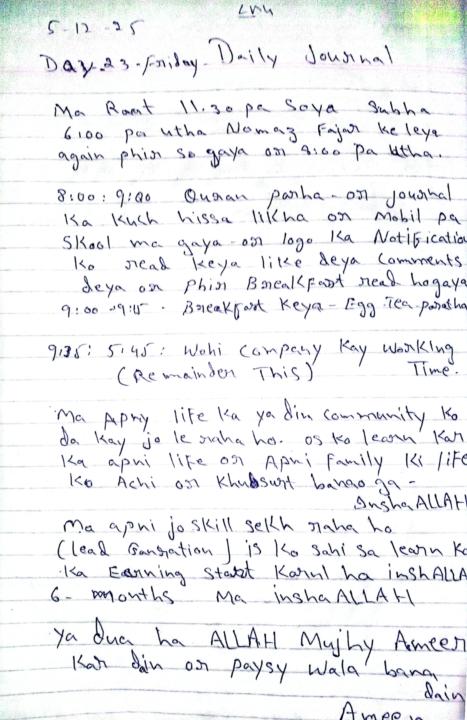 5-12-25
Day.23-Friday-Daily Journal
Ma Raat 11.30 pa Soya Subha
6:00 pa utha Namaz Fajar ke leya
again phir so gaya or 8:00 pa Utha.
8:00 : 9:00 Quran parha - or journal
Ka Kuch hissa likha or Mobil pa
Skool ma gaya - or logo Ka Notification
Ko read keya like deya comments
deya or phir Breakfast read hogaya
9:00 - 9:15 . Breakfast Keya - Egg Tea paratha
9:35: 5:45: Wohi Company Kay working
(Remainder This) Time.
Ma Apny life ka ya din community ko
da kay jo le raha ho. os ko learn Kar
Ka apni life or Apni family Ki life
Ko Achi or Khubsurt banao ga -
InshaALLAH
Ma apni jo skill sekh raha ho
(lead Gansration) is Ko sahi sa learn Ka
Ka Earning Statt Karni ha inshALLA
6- months Ma inshaALLAH
ya dua ha ALLAH Mujhy Ameer
Kar dain or paysy wala bana
dain
Ameen